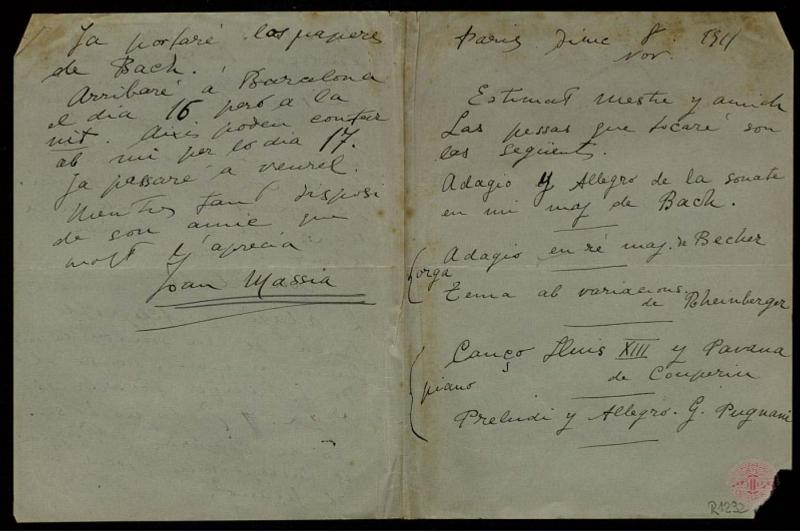 Paris dime 8 1911
Nov.
Estimat Mestre y amich
Las pessas que tocaré son
las següents.
Adagio y Allegro de la sonate
en mi maj de Bach.
Adagio en ré maj. de Becher
orga
Tema ab variacions
de Rheinberger
Canço Lluis XIII y Pavana
piano
de Couperin
Preludi y Allegro. G. Pugnani
R1232
Ja portaré los papers
de Bach.
Arribaré á Barcelona
el dia 16 però a la
nit. Aixis poden contar
ab mi per lo dia 17.
Ja passaré a veurel.
Mentres tant disposi
de son amic que
molt l'aprecia
Joan Massia